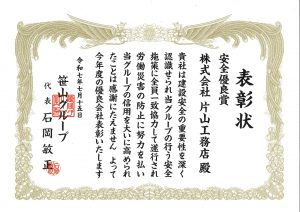 表彰状
安全優良賞
株式会社 片山工務店 殿
貴社は建設安全の重要性を深く
認識せられ当グループの行う安全
施策に全員一致協力して遂行され
労働災害の防止に努力を払い
当グループの信用を大いに高められ
たことは感謝にたえません よって
今年度の優良会社表彰いたします
令和七年七月十五日
笹山グループ
代表 石岡敏正